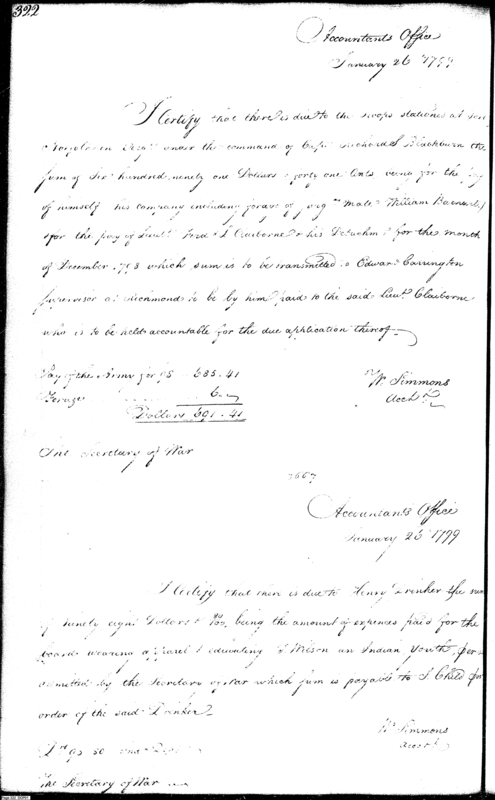 322
Accountants Office
January 26 1799
I Certify that there is due to the troops stationed at
under the command of Capt Richard S Blackburn the
sum of Six hundred ninety one Dollars & forty one Cents being for the pay
of himself his company including forage of William
& for the pay of Lieut. Ferd L Claiborne & his Detachmt for the month
of December 1798 which sum is to be transmitted to Edward Carrington
Supervisor at Richmond to be by him paid to the said Lieut. Claiborne
who is to be held accountable for the due application thereof
Pay of the Army for 98 685.41
Forage 6
Dollars 691.41
Wm Simmons
Acct.
The Secretary of War
7667
Accountants Office
January 26 1799
I Certify that there is due to Henry Drinker the sum
of ninety eight Dollars & being the amount of expences paid for the
board wearing apparel & educating Wilson an Indian Youth, per
admitted by the Secretary of War which sum is payable to J. Child or
order of the said Drinker
Wm Simmons
Acct.
The Secretary of War